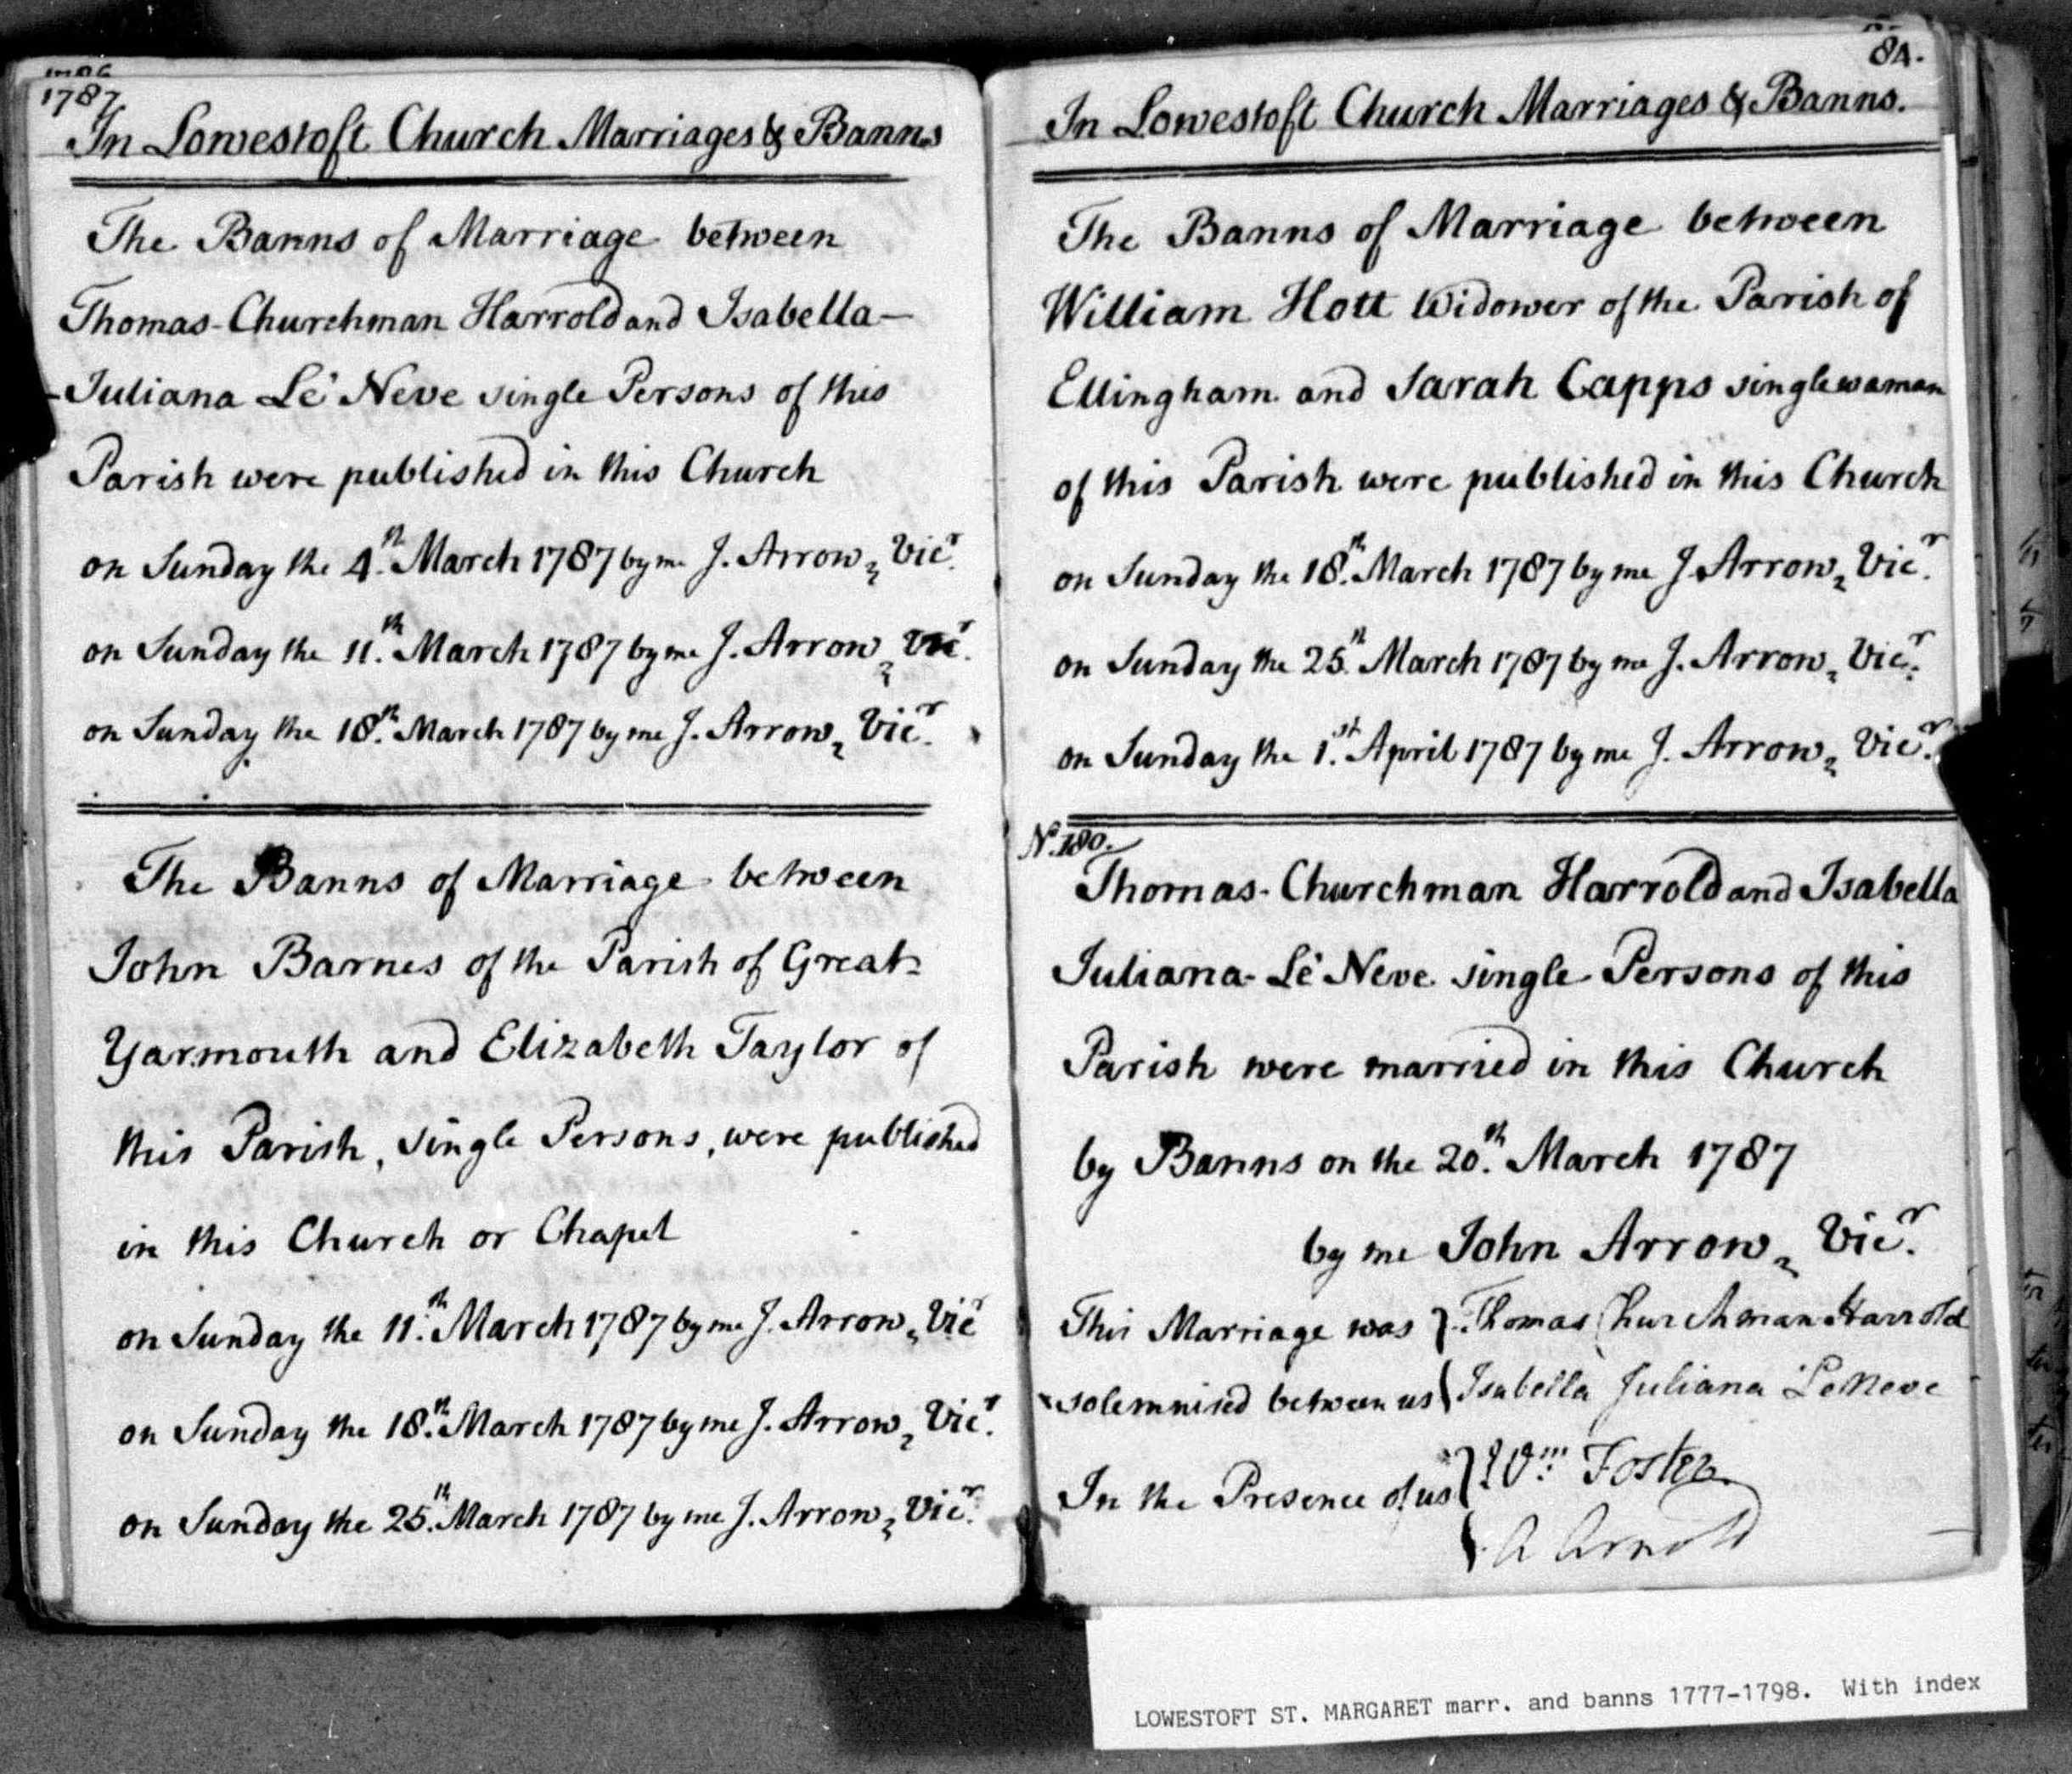 1787
In Lowestoft Church Marriages & Banns
The Banns of Marriage between
Thomas-Churchman Harrold and Isabella-
-Juliana Le' Neve single Persons of this
Parish were published in this Church
on Sunday the 4.th March 1787 by me J. Arrow, Vic.r
on Sunday the 11.th March 1787 by me J. Arrow, Vic.r
on Sunday the 18.th March 1787 by me J. Arrow, Vic.r
The Banns of Marriage between
John Barnes of the Parish of Great-
Yarmouth and Elizabeth Taylor of
this Parish, single Persons, were published
in this Church or Chapel
on Sunday the 11.th March 1787 by me J. Arrow, Vic.r
on Sunday the 18.th March 1787 by me J. Arrow, Vic.r
on Sunday the 25.th March 1787 by me J. Arrow, Vic.r
84.
In Lowestoft Church Marriages & Banns.
The Banns of Marriage between
William Hott Widower of the Parish of
Ellingham and Sarah Capps singlewoman
of this Parish were published in this Church
on Sunday the 18.th March 1787 by me J. Arrow, Vic.r
on Sunday the 25.th March 1787 by me J. Arrow, Vic.r
on Sunday the 1.st April 1787 by me J. Arrow, Vic.r
No. 180.
Thomas-Churchman Harrold and Isabella
Juliana-Le' Neve single Persons of this
Parish were married in this Church
by Banns on the 20.th March 1787
by me John Arrow, Vic.r
This Marriage was } Thomas Churchman Harrold
solemnised between us { Isabella Juliana Le Neve
In the Presence of us } Wm: Foster
A Arnold
LOWESTOFT ST. MARGARET marr. and banns 1777-1798. With index